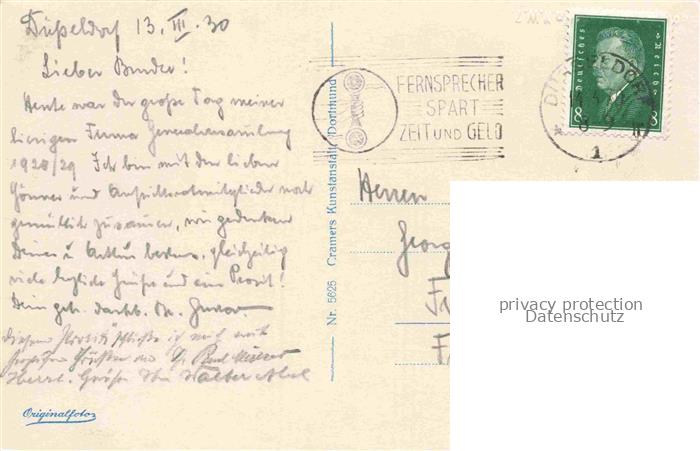 Düsseldorf 13. III. 30
Lieber Bruder!
Heute war der große Tag meiner
hiesigen Firma Generalversammlung
1928/29 Ich bin mit den lieben
Gönner und Aufsichtsratsmitglieder noch
gemütlich zusammen, wir gedenken
Deiner u. Arthur bestens, gleichzeitig
viele herzliche Grüße und ein Prosit!
Dein
Diesem "Prosit" schließe ich mich mit
Grüßen an Paul
Herzl. Grüße Ihr Walter Abel
Originalfoto
Nr. 5625 Cramers Kunstanstalt, Dortmund
FERNSPRECHER
SPART
ZEIT UND GELD
DÜSSELDORF
1
Deutsches Reich
8 8
Herren
Georg
privacy protection
Datenschutz